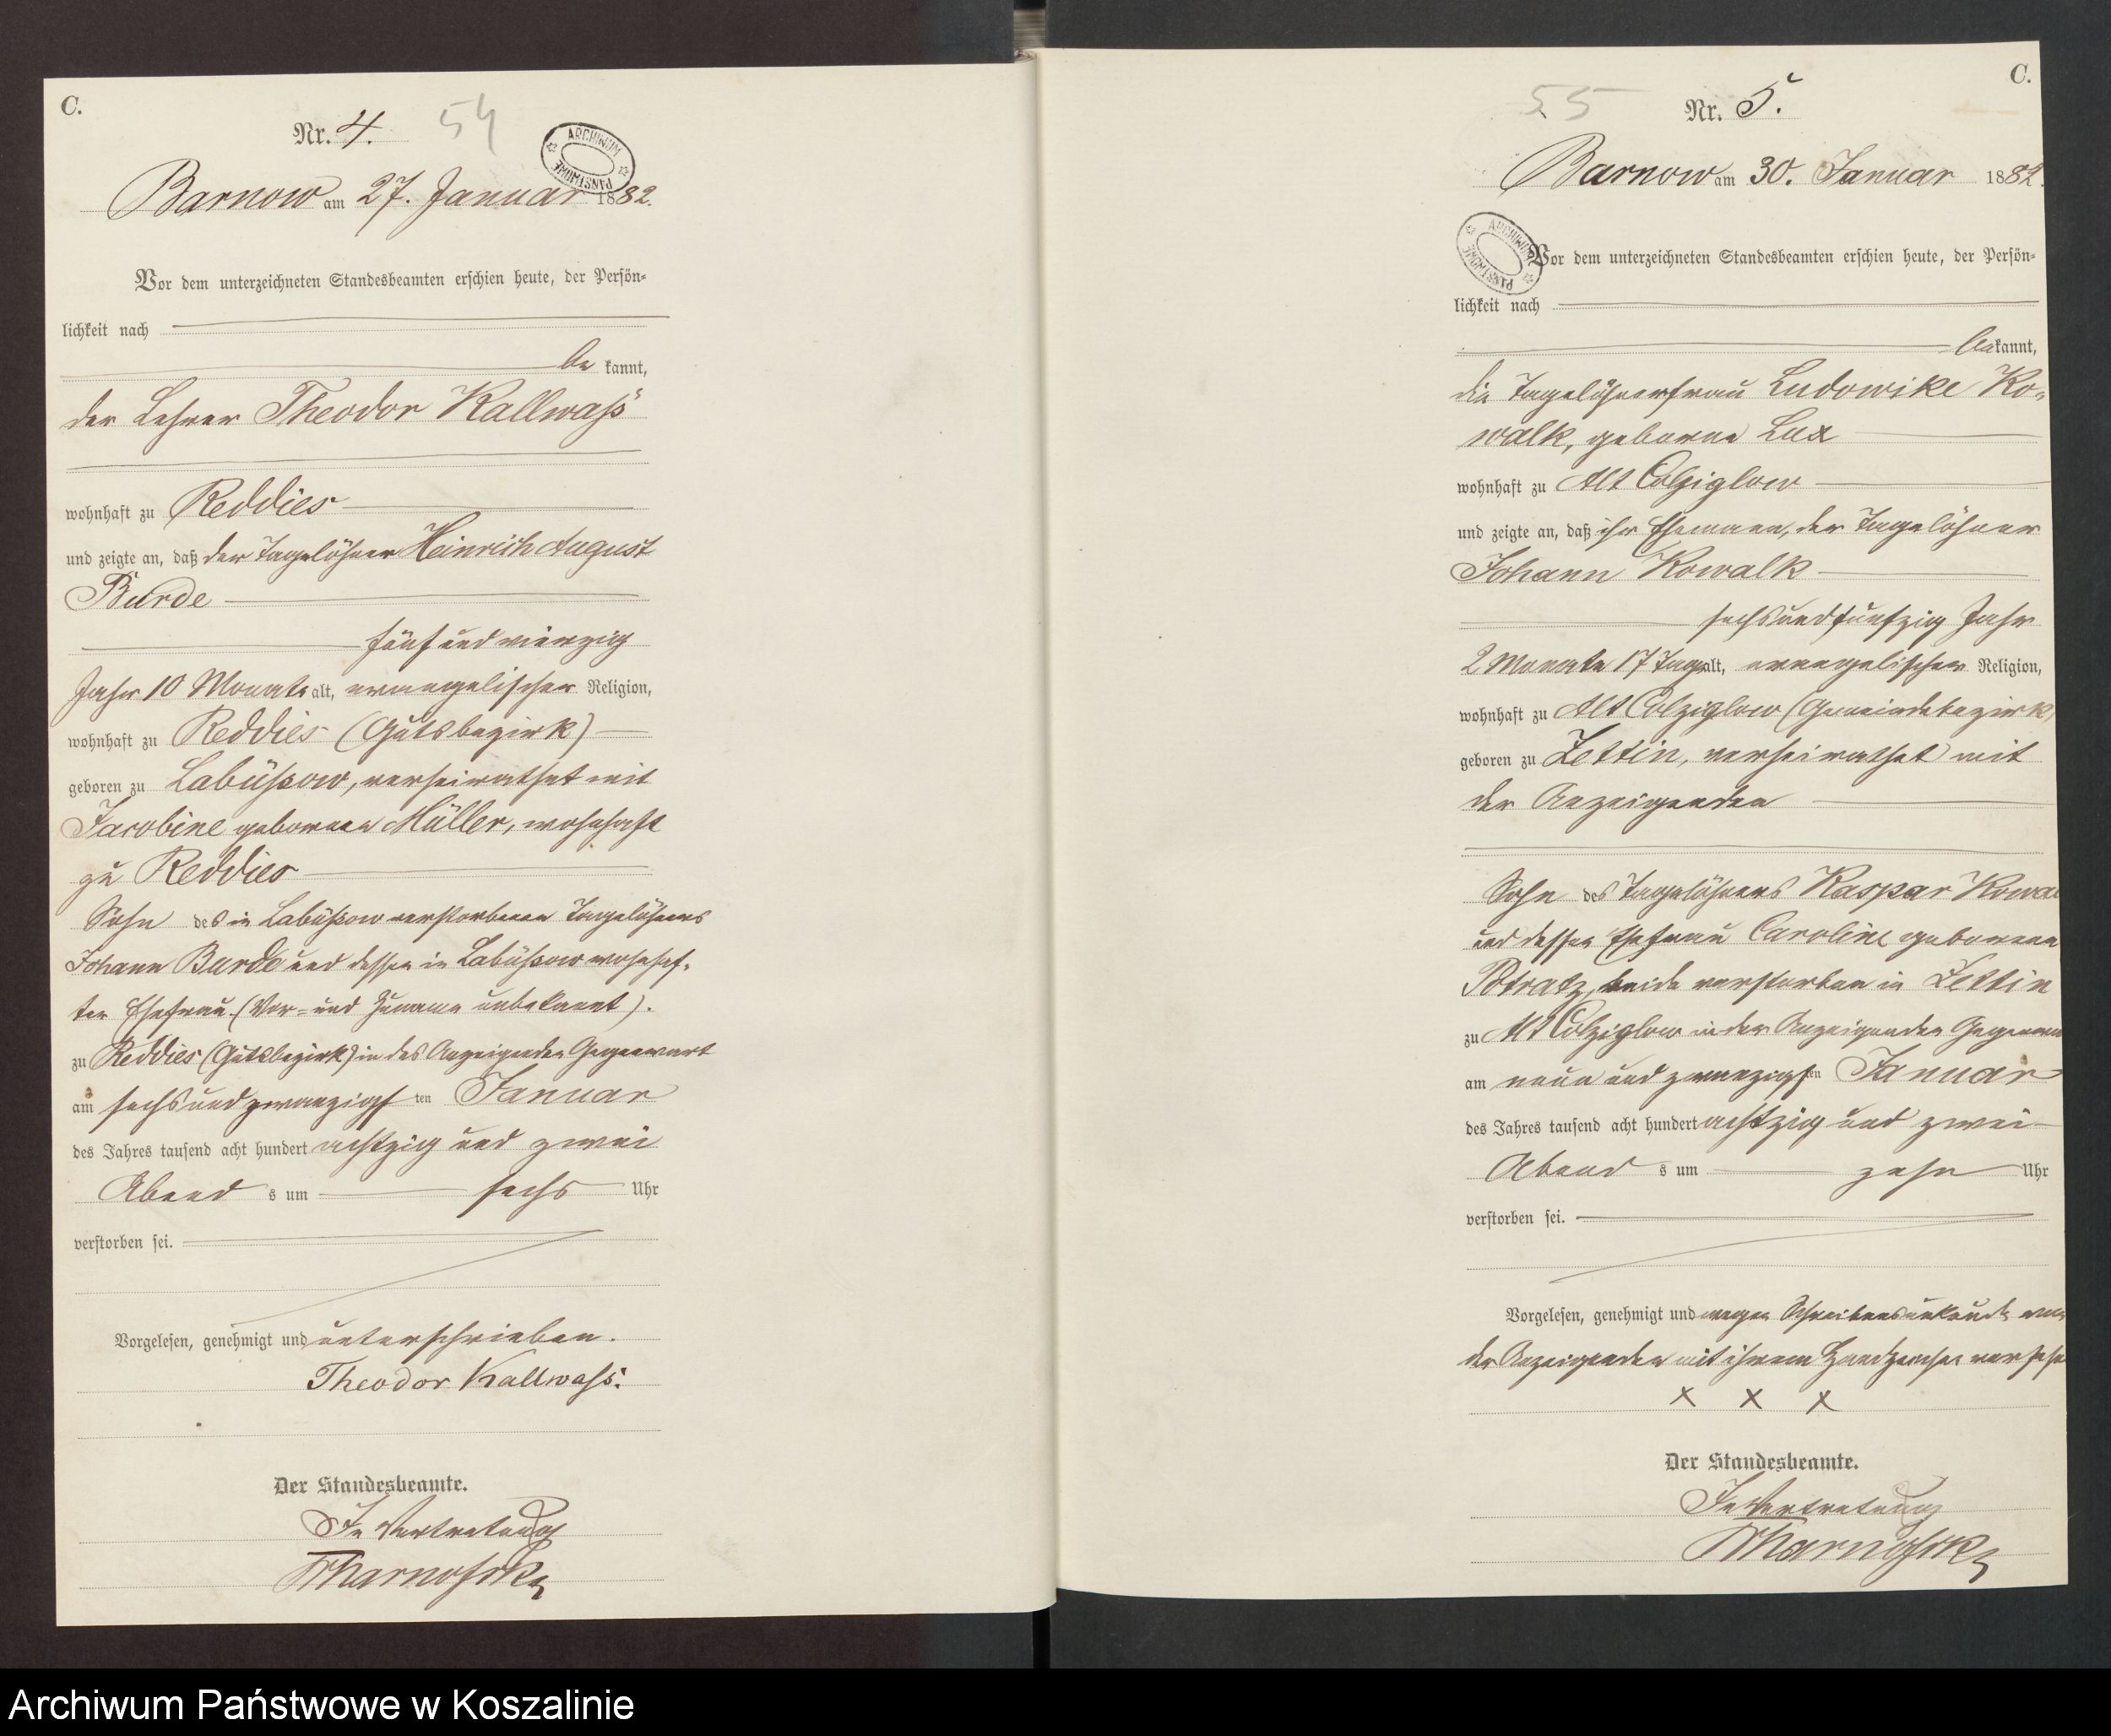 C.
Nr. 4.
54
ARCHIWUM PAŃSTWOWE
Barnow am 27. Januar 1882.
Vor dem unterzeichneten Standesbeamten erschien heute, der Persön-
lichkeit nach
be kannt,
der Lehrer Theodor Kallwaß
wohnhaft zu Reddies
und zeigte an, daß der Tagelöhner Heinrich August
Burde
fünf und vierzig
Jahr 10 Monate alt, evangelischer Religion,
wohnhaft zu Reddies (Gutsbezirk)
geboren zu Labüßow, verheirathet mit
Jacobine geborenen Müller, wohnhaft
zu Reddies
Sohn des in Labüßow verstorbenen Tagelöhners
Johann Burde und dessen in Labüßow wohnhaf-
ten Ehefrau (Vor- und Zuname unbekannt).
zu Reddies (Gutsbezirk) in des Anzeigenden Gegenwart
am sechsundzwanzigsten Januar
des Jahres tausend acht hundert achtzig und zwei
Abend s um sechs Uhr
verstorben sei.
Vorgelesen, genehmigt und unterschrieben.
Theodor Kallwaß.
Der Standesbeamte.
In Vertretung
C.
55
Nr. 5.
Barnow am 30. Januar 1882.
ARCHIWUM PAŃSTWOWE
Vor dem unterzeichneten Standesbeamten erschien heute, der Persön-
lichkeit nach
bekannt,
die Tagelöhnerfrau Ludowike Ko-
walk, geborne Lux
wohnhaft zu Alt Colziglow
und zeigte an, daß ihr Ehemann, der Tagelöhner
Johann Kowalk
sechsundfünfzig Jahr
2 Monate 17 Tage alt, evangelischer Religion,
wohnhaft zu Alt Colziglow (Gemeindebezirk)
geboren zu Zettin, verheirathet mit
der Anzeigenden
Sohn des Tagelöhners Kaspar Kowal
und dessen Ehefrau Caroline geborenen
Potratz, beide verstorben in Zettin
zu Alt Colziglow in der Anzeigenden Gegenw
am neun und zwanzigsten Januar
des Jahres tausend acht hundert achtzig und zwei
Abend s um zehn Uhr
verstorben sei.
Vorgelesen, genehmigt und wegen Schreibensunkunde von
der Anzeigenden mit ihrem Handzeichen versehe
x x x
Der Standesbeamte.
In Vertretung
Archiwum Państwowe w Koszalinie